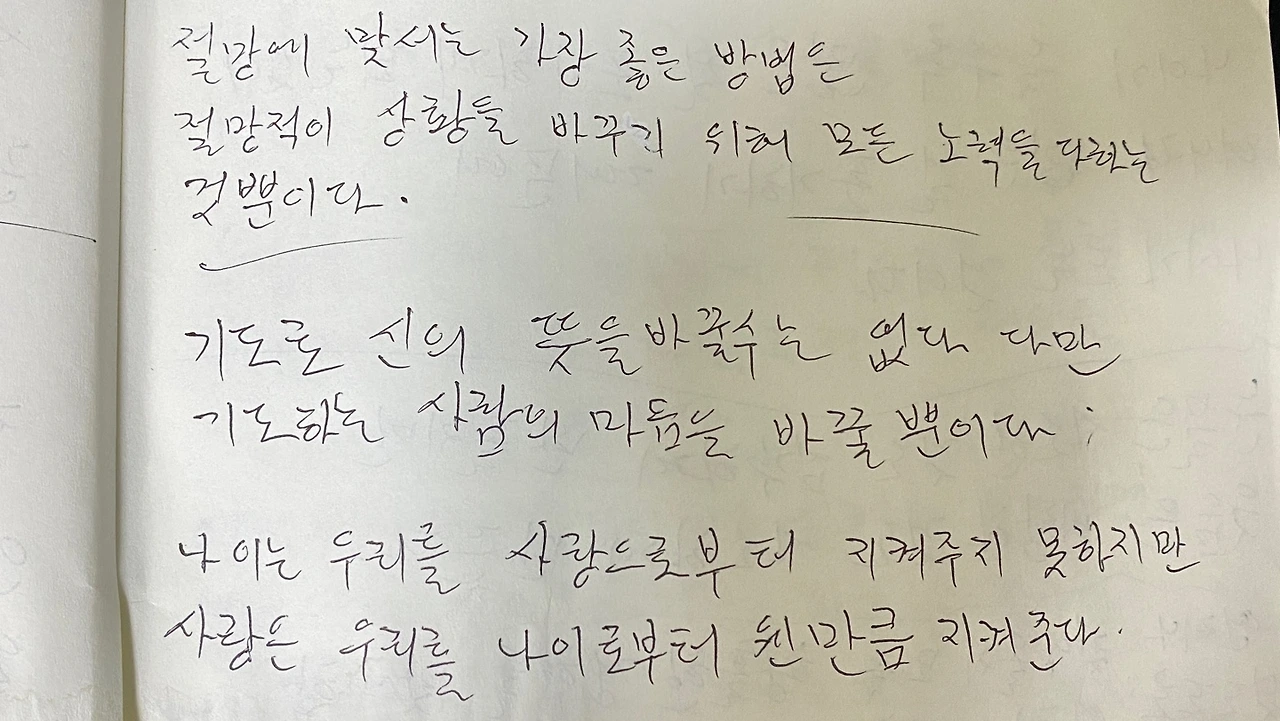 절망에 맞서는 가장 좋은 방법은
절망적이 상황들 바꾸기 위해 모든 노력을 다하는
것뿐이다.
기도로 신의 뜻을 바꿀수는 없다 다만
기도하는 사람의 마음을 바꿀 뿐이다.
나이는 우리를 사랑으로부터 지켜주지 못하지만
사랑은 우리를 나이로부터 웬만큼 지켜준다.